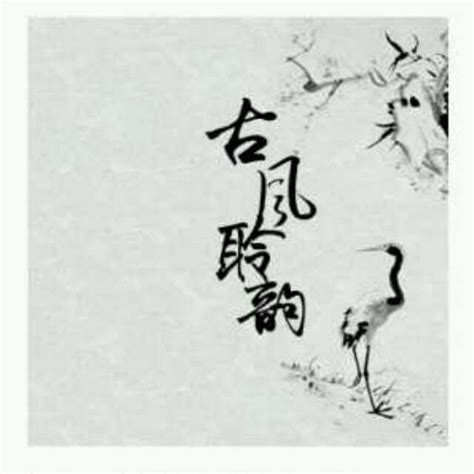 古风聆韵